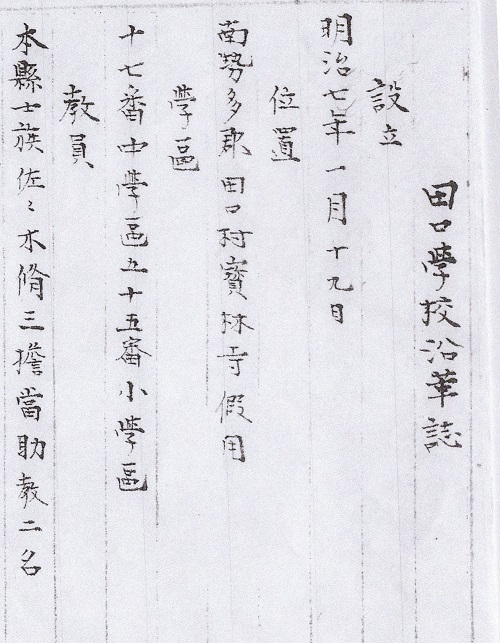 田口學校沿革誌
設立
明治七年一月十九日
位置
南勢多郡田口村寶林寺假用
學區
十七番中學區五十五番小學區
教員
本縣士族佐々木脩三擔當助教二名